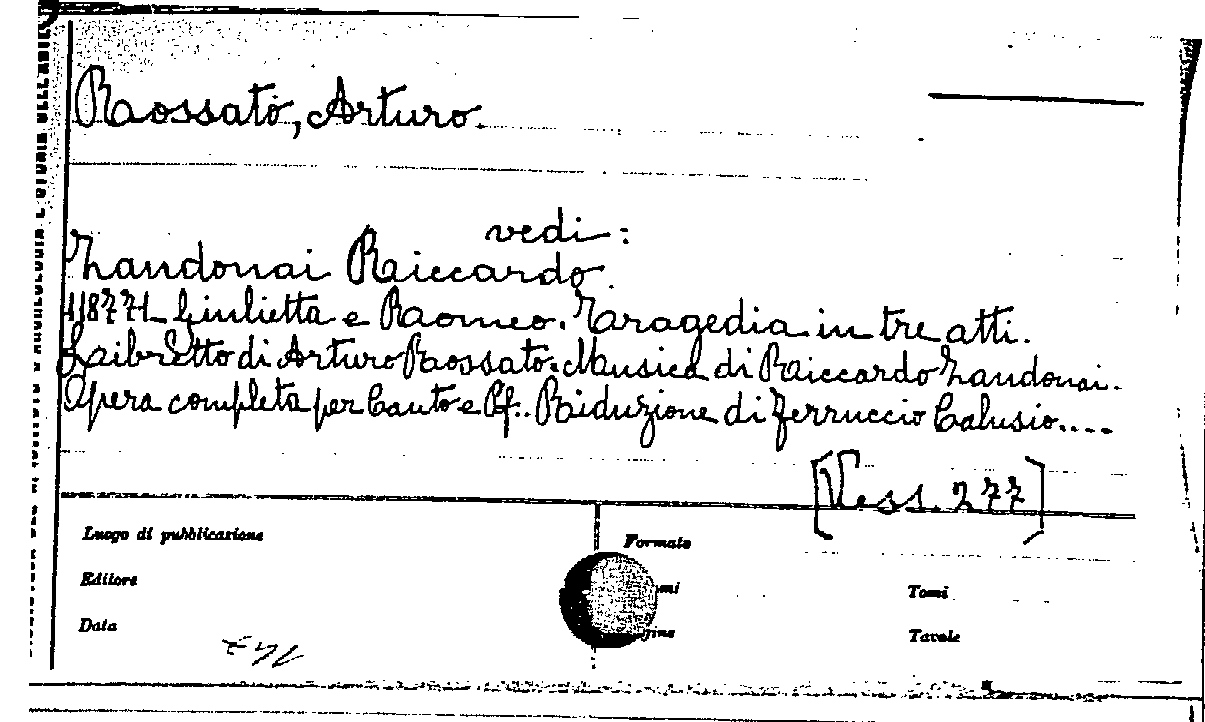 Rossato, Arturo.
vedi:
Zandonai Riccardo.
118771 Giulietta e Romeo. Tragedia in tre atti.
Libretto di Arturo Rossato. Musica di Riccardo Zandonai.
Opera completa per Canto e Pf. Riduzione di Ferruccio Calusio....
[Vess. 277]
Luogo di pubblicazione
Formato
Editore
Tomi
Data
Tavole